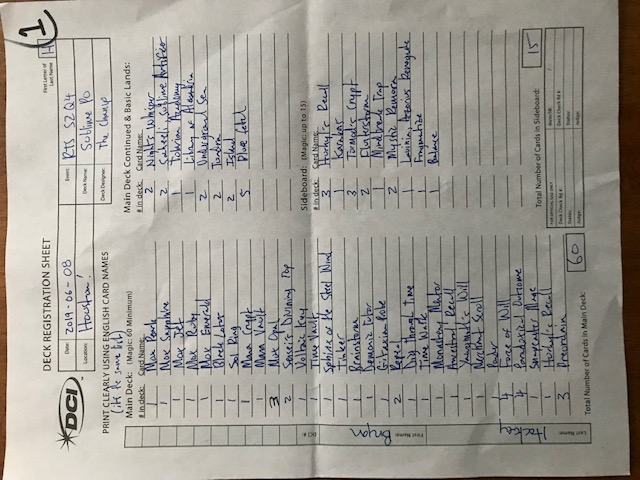 DECK REGISTRATION SHEET
First Letter of Last Name H
1
DCI
Date: 2019-06-08
Event: RTS S2Q4
Location: Houston!
Deck Name: Sublime PO
Deck Designer: The Champ
PRINT CLEARLY USING ENGLISH CARD NAMES
(it's the same list)
Main Deck: (Magic: 60 Minimum)
# in deck: Card Name:
1 Mox Pearl
1 Mox Sapphire
1 Mox Jet
1 Mox Ruby
1 Mox Emerald
1 Black Lotus
1 Sol Ring
1 Mana Crypt
1 Mana Vault
3 Mox Opal
2 Sensei's Divining Top
1 Voltaic Key
1 Time Vault
1 Sphinx of the Steel Wind
1 Tinker
1 Brainstorm
1 Demonic Tutor
1 Gitaxian Probe
2 Repeal
1 Dig Through Time
1 Time Walk
1 Monastery Mentor
1 Ancestral Recall
1 Yawgmoth's Will
1 Merchant Scroll
1 Ponder
4 Force of Will
4 Paradoxical Outcome
1 Snapcaster Mage
1 Hurkyl's Recall
3 Preordain
Total Number of Cards in Main Deck: 60
Main Deck Continued & Basic Lands:
# in deck: Card Name:
2 Night's Whisper
2 Saheeli, Sublime Artificer
1 Tolarian Academy
1 Library of Alexandria
2 Underground Sea
2 Tundra
2 Island
5 Blue fetch
Sideboard: (Magic: up to 15)
# in deck: Card Name:
3 Hurkyl's Recall
1 Karakas
3 Tormod's Crypt
2 Flusterstorm
1 Mindbreak Trap
2 Mystic Remora
1 Lavinia, Azorius Renegade
1 Fragmentize
1 Balance
Total Number of Cards in Sideboard: 15
FOR OFFICIAL USE ONLY
Deck Check Rd #:
Status:
Judge:
Main/SB: /
Deck Check Rd #:
Status:
Judge:
DCI #:
First Name: Bryan
Last Name: Hockey